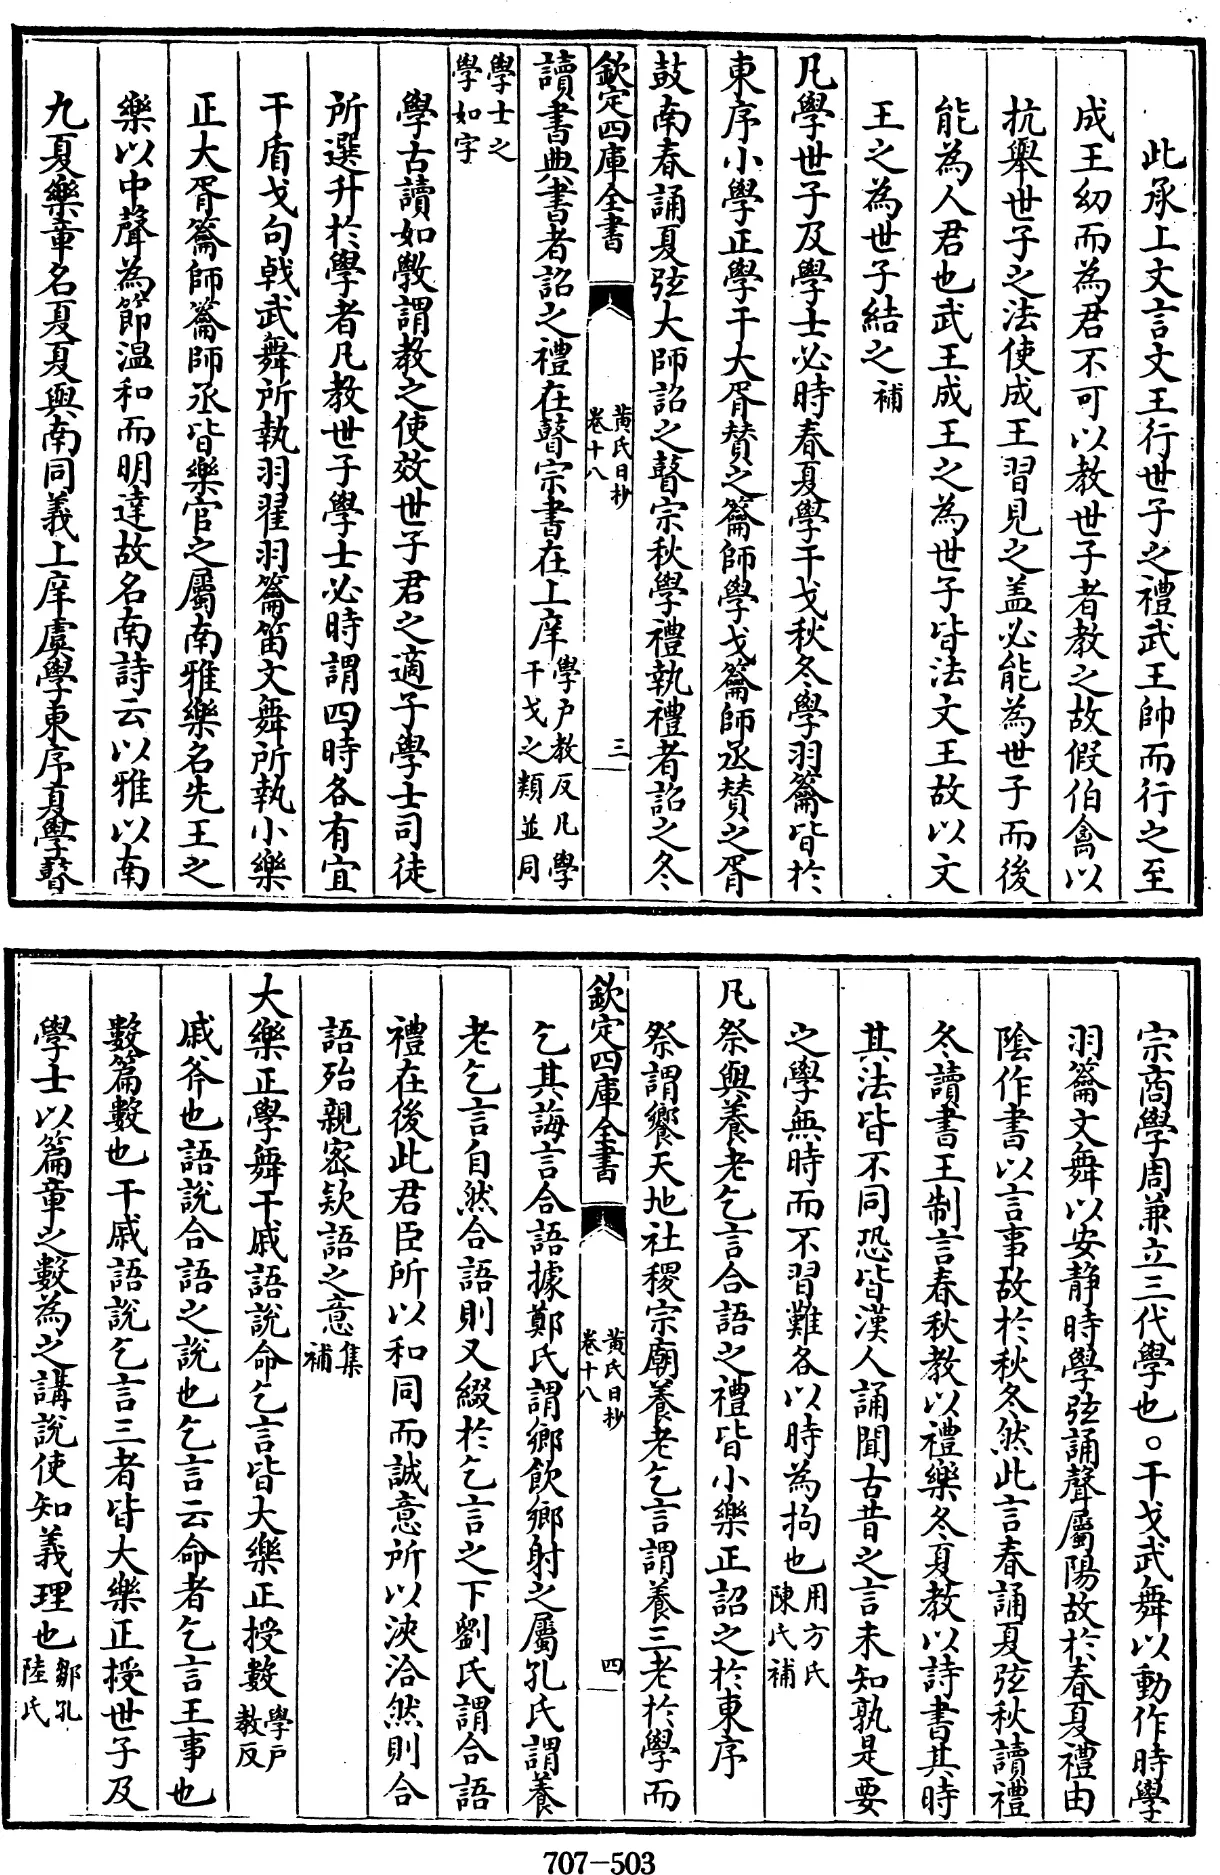 此承上文言文王行世子之禮武王帥而行之至
成王幼而為君不可以教世子者教之故假伯禽以
抗舉世子之法使成王習見之盖必能為世子而後
能為人君也武王成王之為世子皆法文王故以文
王之為世子結之補
凡學世子及學士必時春夏學干戈秋冬學羽籥皆於
東序小學正學干大胥賛之籥師學戈籥師丞賛之胥
鼓南春誦夏弦大師詔之瞽宗秋學禮執禮者詔之冬
欽定四庫全書
黄氏日抄
卷十八
三
讀書典書者詔之禮在瞽宗書在上庠學户教反凡學
干戈之類並同
學士之
學如字
學古讀如斆謂教之使效世子君之適子學士司徒
所選升於學者凡教世子學士必時謂四時各有宜
干盾戈句戟武舞所執羽翟羽籥笛文舞所執小樂
正大胥籥師籥師丞皆樂官之屬南雅樂名先王之
樂以中聲為節温和而明達故名南詩云以雅以南
九夏樂章名夏夏與南同義上庠虞學東序夏學瞽
宗商學周兼立三代學也○干戈武舞以動作時學
羽籥文舞以安静時學弦誦聲屬陽故於春夏禮由
陰作書以言事故於秋冬然此言春誦夏弦秋讀禮
冬讀書王制言春秋教以禮樂冬夏教以詩書其時
其法皆不同恐皆漢人誦聞古昔之言未知孰是要
之學無時而不習難各以時為拘也用方氏
陳氏補
凡祭與養老乞言合語之禮皆小樂正詔之於東序
祭謂饗天地社稷宗廟養老乞言謂養三老於學而
欽定四庫全書
黄氏日抄
卷十八
四
乞其誨言合語據鄭氏謂鄉飲鄉射之屬孔氏謂養
老乞言自然合語則又綴於乞言之下劉氏謂合語
禮在後此君臣所以和同而誠意所以浹洽然則合
語殆親宻欵語之意集
補
大樂正學舞干戚語說命乞言皆大樂正授數學户
教反
戚斧也語說合語之說也乞言云命者乞言王事也
數篇數也干戚語説乞言三者皆大樂正授世子及
學士以篇章之數為之講說使知義理也鄒孔
陸氏
707—503